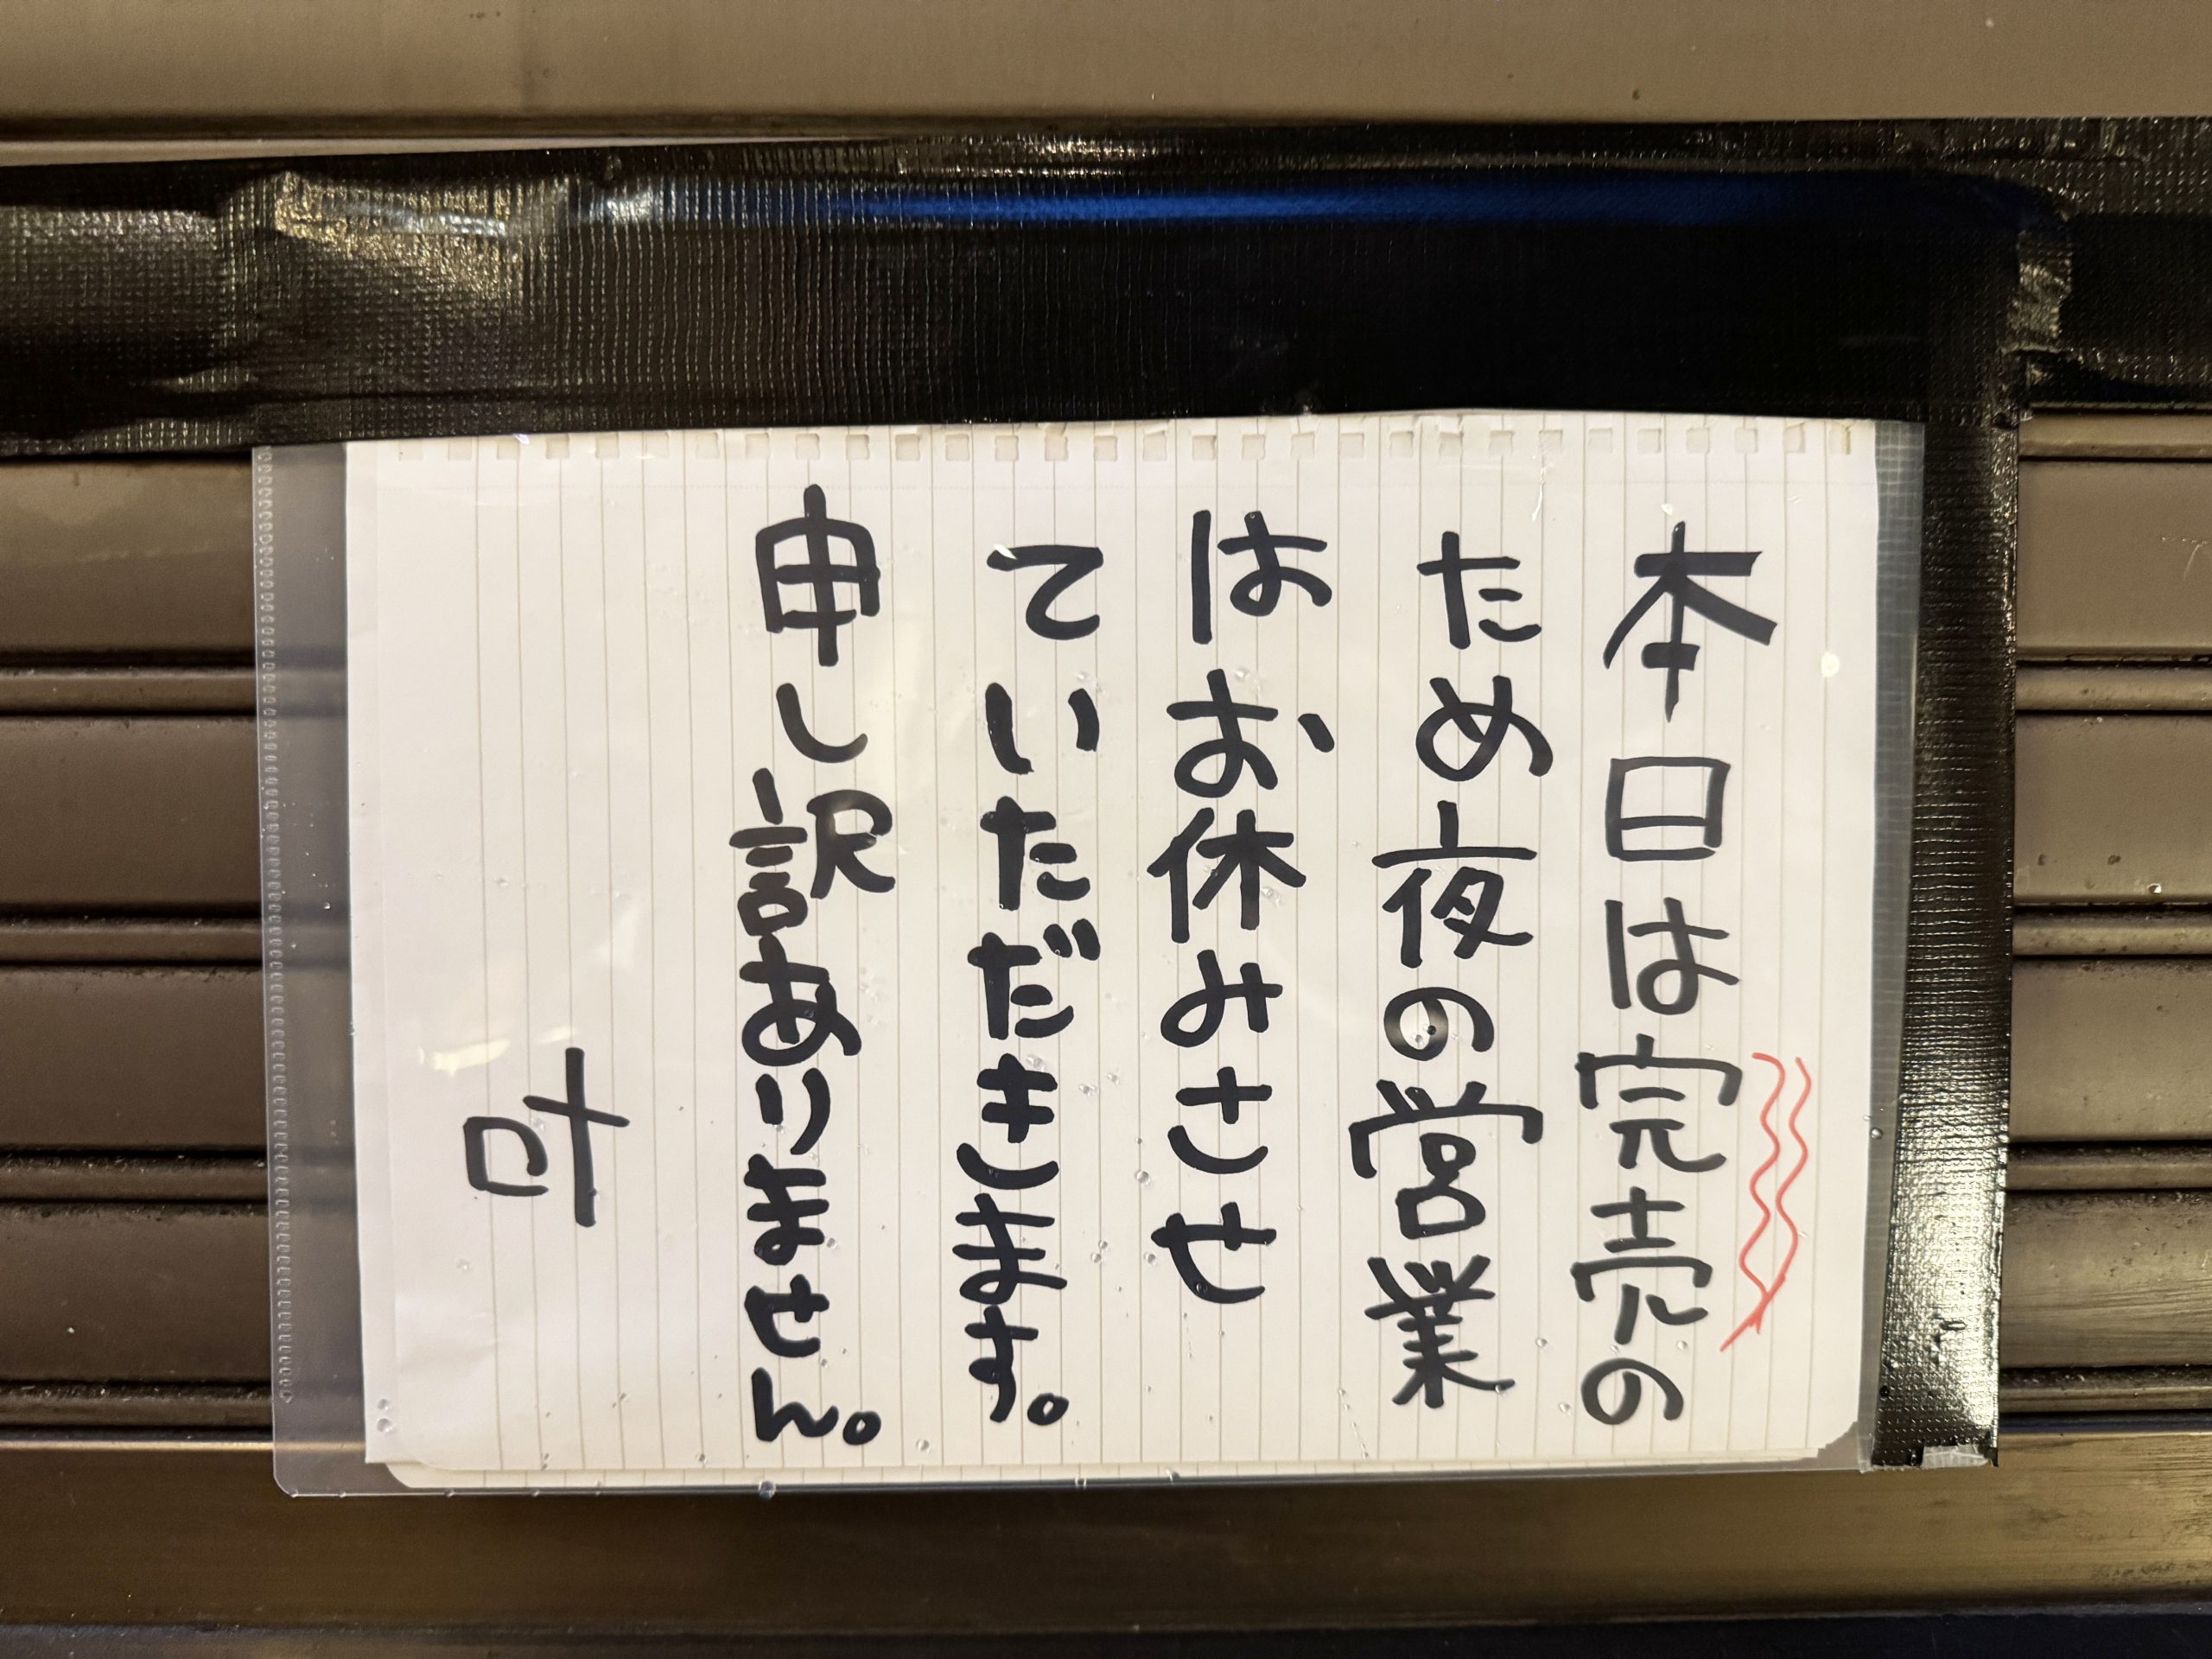 本日は完売の
ため夜の営業
はお休みさせ
ていただきます。
申し訳ありません。